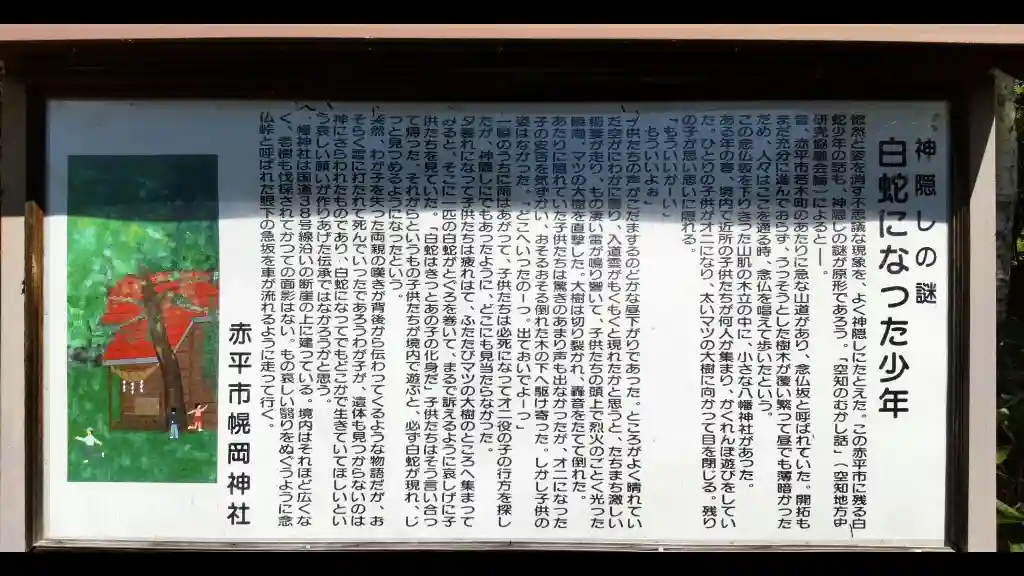 神隠しの謎
白蛇になった少年
忽然と姿を消す不思議な現象を、よく神隠しにたとえた。この赤平市に残る白
蛇少年の話も、神隠しの謎が原形であろう。「空知のむかし話」（空知地方史
研究協議会編）によると―。
昔、赤平市茂木町のあたりに急な山道があり、念仏坂と呼ばれていた。開拓も
まだ充分に進んでおらず、うっそうとした樹木が覆い繁って昼でも薄暗かった
ため、人々はここを通る時、念仏を唱えて歩いたという。
この念仏坂を下りきった山肌の木立の中に、小さな八幡神社があった。
ある年の春、境内で近所の子供たちが何人か集まり、かくれんぼ遊びをしてい
た。ひとりの子供がオニになり、太いマツの大樹に向かって目を閉じる。残り
の子が思い思いに隠れる。
「もういいかーい」
「もういいよぉ」
子供たちの声がこだまするのどかな昼下がりであった。ところがよく晴れてい
た空がにわかに曇り、入道雲がもくもくと現れたかと思うと、たちまち激しい
稲妻が走り、もの凄い雷が鳴り響いて、子供たちの頭上で烈火のごとく光った
瞬間、マツの大樹を直撃した。大樹は切り裂かれ、轟音をたてて倒れた。
あたりに隠れていた子供たちは驚きのあまり声も出なかったが、オニになった
子の安否を気ずかい、おそるおそる倒れた木の下へ駆け寄った。しかし子供の
姿はなかった。「どこへいったのーっ、出ておいでよーっ」
一瞬のうちに雨はあがって、子供たちは必死になってオニ役の子の行方を探し
たが、神隠しにでもあったように、どこにも見当たらなかった。
夕暮れになって子供たちは疲れはて、ふたたびマツの大樹のところへ集まって
みると、そこに一匹の白蛇がとぐろを巻いて、まるで訴えるように哀しげに子
供たちを見ていた。「白蛇はきっとあの子の化身だ」子供たちはそう言い合っ
て帰った。それからというもの子供たちが境内で遊ぶと、必ず白蛇が現れ、じ
っと見つめるようになったという。
突然、わが子を失った両親の嘆きが背後から伝わってくるような物語だが、お
そらく雷に打たれて死んでいったであろうわが子が、遺体も見つからないのは
神にさらわれたものであり、白蛇になってでもどこかで生きていてほしいとい
う哀しい願いが作りあげた伝承ではなかろうかと思う。
幡神社は国道３８号線沿いの断崖の上に建っている。境内はそれほど広くな
く、老樹も伐採されてかつての面影はない。もの哀しい翳りをぬぐうように念
仏峠と呼ばれた眼下の急坂を車が流れるように走って行く。
赤平市幌岡神社